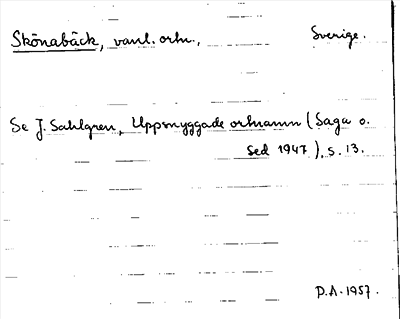 Skönabäck, vanl. ortn., Sverige.
Se J. Sahlgren, Uppsnyggade ortnamn (Saga o.
Sed 1947), s. 13.
D.A. 1957.